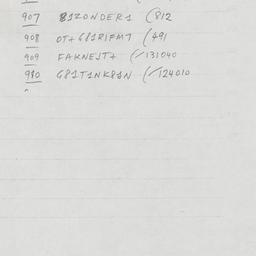 907 81ZONDER1 (812
908 OT+G81RIFM7 (491
909 FAKNEJT+ (✓131040
980 G81T1NK81N (✓124010